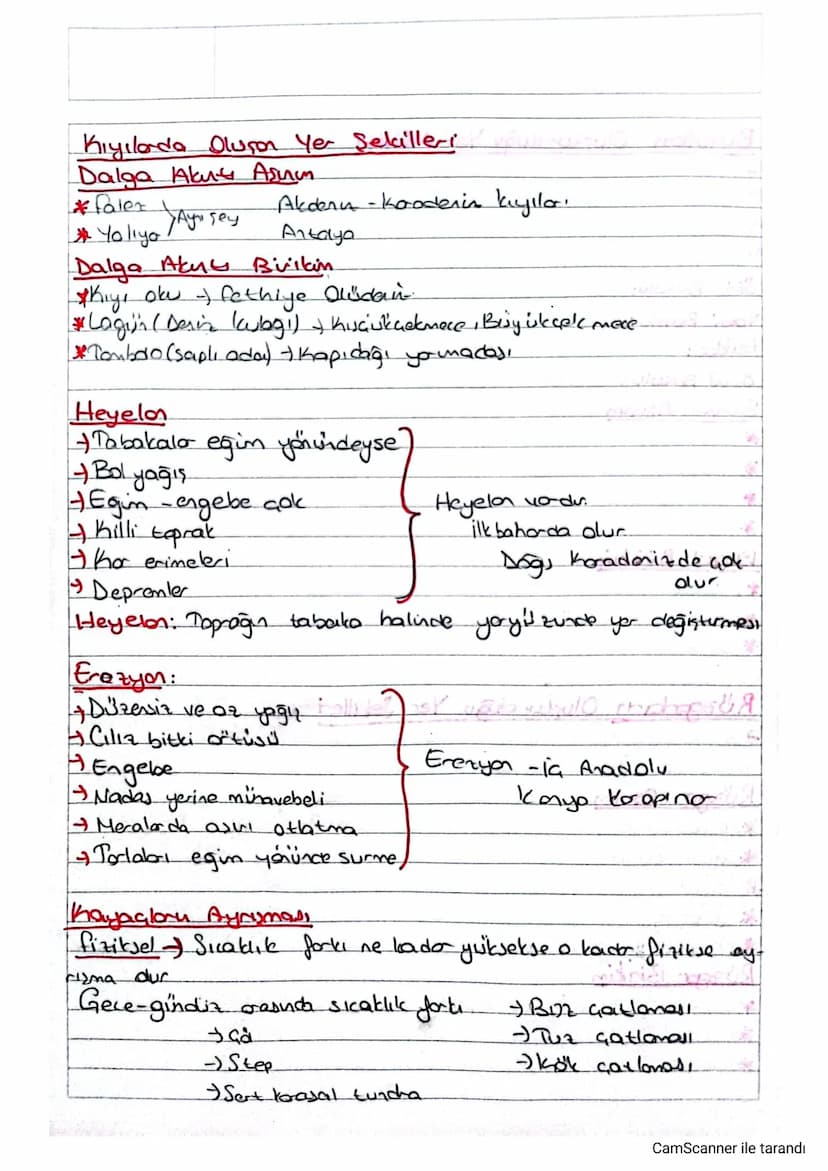 Kıyılarda Oluşan Yer Şekilleri
Dalga Akıntı Aşınım
* Falez } Aynı şey Akdeniz - Karadeniz kıyıları
* Yalıyar Antalya
Dalga Akıntı Birikim
* Kıyı oku → Fethiye Ölüdeniz
* Lagün (Deniz kulağı) → Küçükçekmece, Büyükçekmece
* Tombolo (saplı ada) → Kapıdağı yarımadası
Heyelan
→ Tabakalar eğim yönündeyse
→ Bol yağış
→ Eğim - engebe çok Heyelan vardır.
→ Killi toprak ilkbaharda olur.
→ Kar erimeleri Doğu Karadenizde çok
→ Depremler olur
Heyelan: Toprağın tabaka halinde yeryüzünde yer değiştirmesi
Erozyon:
→ Düzensiz ve az yağış
→ Cılız bitki örtüsü
→ Engebe Erozyon - iç Anadolu
→ Nadas yerine münavebeli Konya Karapınar
→ Meralarda aşırı otlatma
→ Tarlaları eğim yönünce sürme
Kayaçların Ayrışması
fiziksel → Sıcaklık farkı ne kadar yüksekse o kadar fizikse ay-
rışma olur
Gece-gündüz arasında sıcaklık farkı → Buz çatlaması
→ Çöl → Tuz çatlaması
→ Step → Kök çatlaması
→ Sert karasal tundra
CamScanner ile tarandı